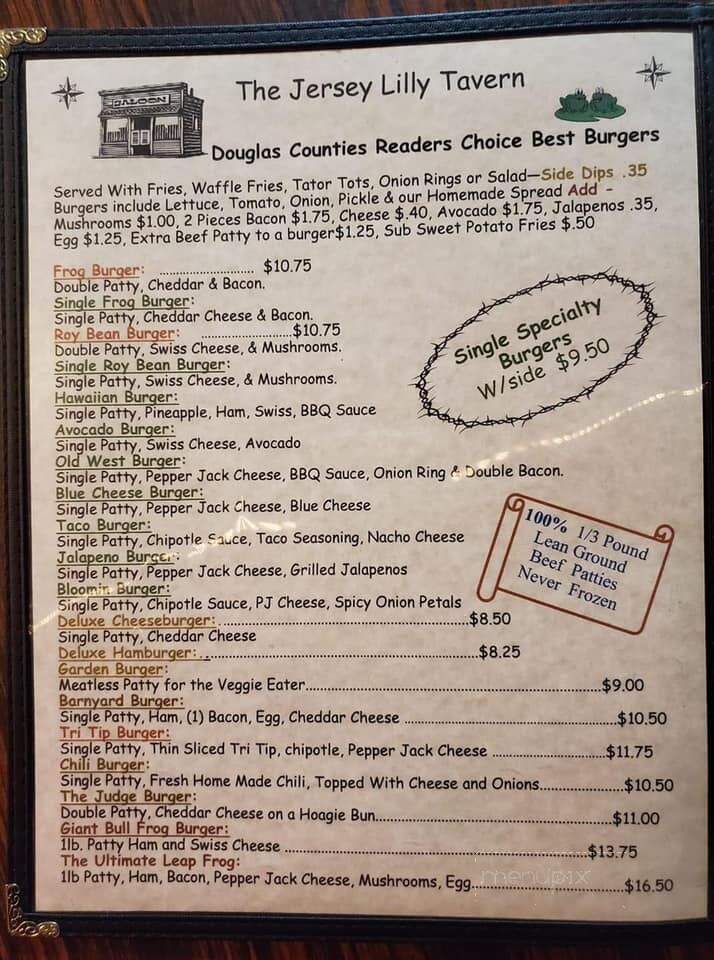 SALOON
The Jersey Lilly Tavern
Douglas Counties Readers Choice Best Burgers
Served With Fries, Waffle Fries, Tator Tots, Onion Rings or Salad—Side Dips .35
Burgers include Lettuce, Tomato, Onion, Pickle & our Homemade Spread Add -
Mushrooms $1.00, 2 Pieces Bacon $1.75, Cheese $.40, Avocado $1.75, Jalapenos .35,
Egg $1.25, Extra Beef Patty to a burger$1.25, Sub Sweet Potato Fries $.50
Frog Burger: ........................... $10.75
Double Patty, Cheddar & Bacon.
Single Frog Burger:
Single Patty, Cheddar Cheese & Bacon.
Roy Bean Burger: ..........................$10.75
Double Patty, Swiss Cheese, & Mushrooms.
Single Roy Bean Burger:
Single Patty, Swiss Cheese, & Mushrooms.
Hawaiian Burger:
Single Patty, Pineapple, Ham, Swiss, BBQ Sauce
Avocado Burger:
Single Patty, Swiss Cheese, Avocado
Old West Burger:
Single Patty, Pepper Jack Cheese, BBQ Sauce, Onion Ring & Double Bacon.
Blue Cheese Burger:
Single Patty, Pepper Jack Cheese, Blue Cheese
Taco Burger:
Single Patty, Chipotle Sauce, Taco Seasoning, Nacho Cheese
Jalapeno Burger:
Single Patty, Pepper Jack Cheese, Grilled Jalapenos
Bloomin Burger:
Single Patty, Chipotle Sauce, PJ Cheese, Spicy Onion Petals
Deluxe Cheeseburger: ..............................................................$8.50
Single Patty, Cheddar Cheese
Deluxe Hamburger: ..................................................................$8.25
Garden Burger:
Meatless Patty for the Veggie Eater..............................................................$9.00
Barnyard Burger:
Single Patty, Ham, (1) Bacon, Egg, Cheddar Cheese .............................................$10.50
Tri Tip Burger:
Single Patty, Thin Sliced Tri Tip, chipotle, Pepper Jack Cheese ........................$11.75
Chili Burger:
Single Patty, Fresh Home Made Chili, Topped With Cheese and Onions..................$10.50
The Judge Burger:
Double Patty, Cheddar Cheese on a Hoagie Bun..................................................$11.00
Giant Bull Frog Burger:
1lb. Patty Ham and Swiss Cheese ................................................................$13.75
The Ultimate Leap Frog:
1lb Patty, Ham, Bacon, Pepper Jack Cheese, Mushrooms, Egg................................$16.50
Single Specialty
Burgers
W/side $9.50
100% 1/3 Pound
Lean Ground
Beef Patties
Never Frozen
menupix